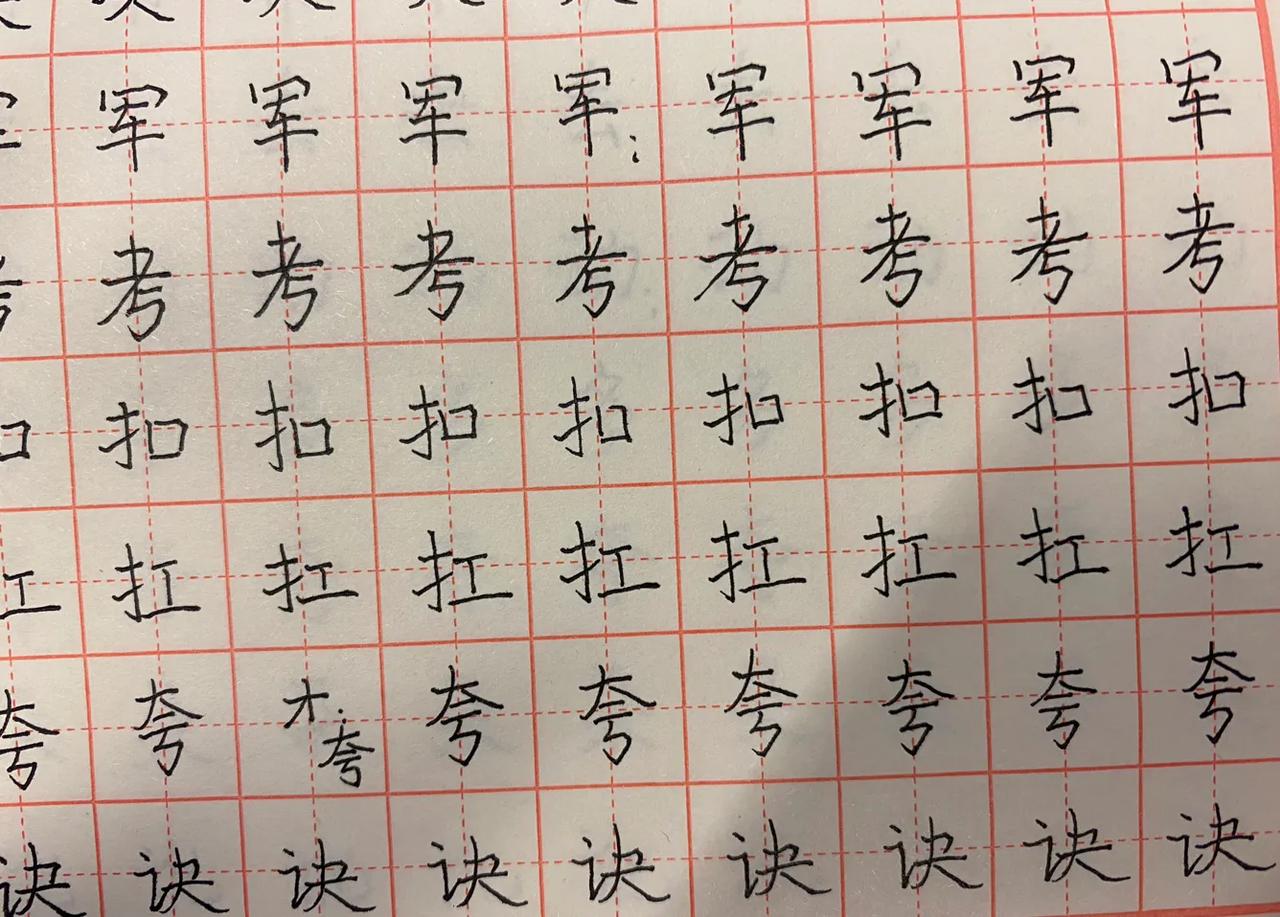 军 军 军 军 军; 军 军 军 军
考 考 考 考 考 考 考 考 考
扣 扣 扣 扣 扣 扣 扣 扣
扛 扛 扛 扛 扛 扛 扛 扛
夸 夸 夸 夸 夸 夸 夸 夸 夸
诀 诀 诀 诀 诀 诀 诀 诀 诀